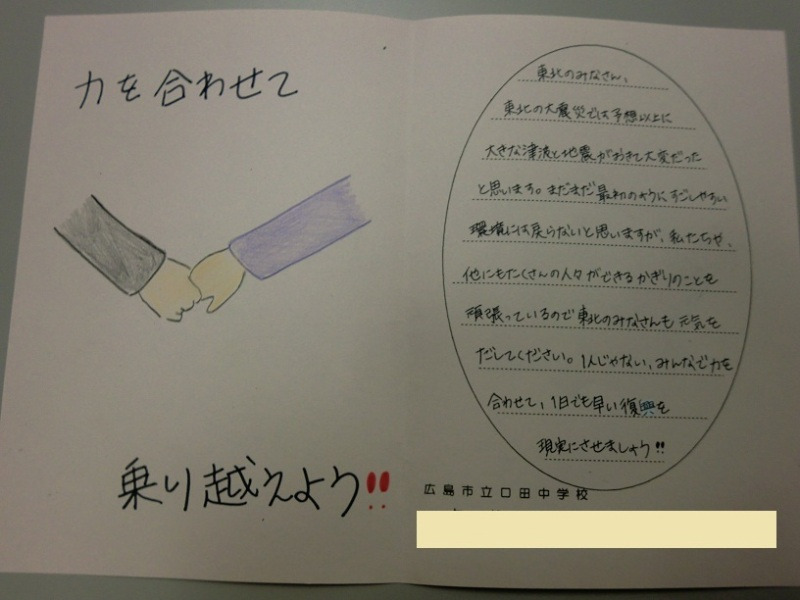 力を合わせて
乗り越えよう!!
東北のみなさん、
東北の大震災では予想以上に
大きな津波と地震がおきて大変だった
と思います。まだまだ最初のようにすごしやすい
環境には戻らないと思いますが、私たちや、
他にもたくさんの人々ができるかぎりのことを
頑張っているので東北のみなさんも元気を
だしてください。1人じゃない、みんなで力を
合わせて、1日でも早い復興を
現実にさせましょう!!
広島市立口田中学校